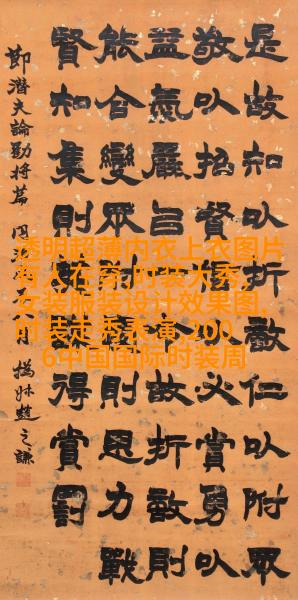 是故知以折敵仁以附眾
敬以招賢必賞勇以
益氣嚴以令故折敵則
能合變眾附則思力戰
賢知集則得賞罰
節潛夫論勸將篇 同 月 撝叔趙之謙
透明超薄内衣上衣图片
有人在穿,时装大秀,
女装服装设计效果图,
时装走秀表演,200
6中国国际时装周